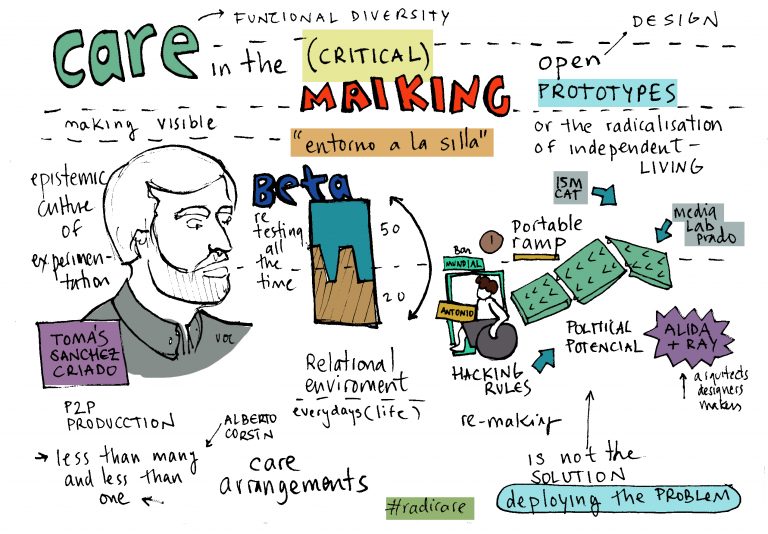 care
FUNZIONAL DIVERSITY
in the (CRITICAL)
MAIKING
"entorno a la silla"
DESIGN
open
PROTOTYPES
or the radicalisation
of independent-
LIVING
making visible
epistemic
culture
of
experimen-
tation
TOMÁS
SANCHEZ
CRIADO
VOL
Beta
re
testing
all
the
time
50
20
15M
CAT
MEDIA
LAB
PRADO
Portable
ramp
Bar
MUNDIAL
ANTONIO
HACKING
RULES
POLITICAL
POTENCIAL
ALIDA
+ RAY
arquitects
designers
makers
Relational
enviroment
everydays (life)
re-making
P2P
PRODUCCTION
ALBERTO
CORSÍN
less than many
and less than
one
care
arrangements
IS NOT THE
SOLUTION
deploying the PROBLEM
#radicare